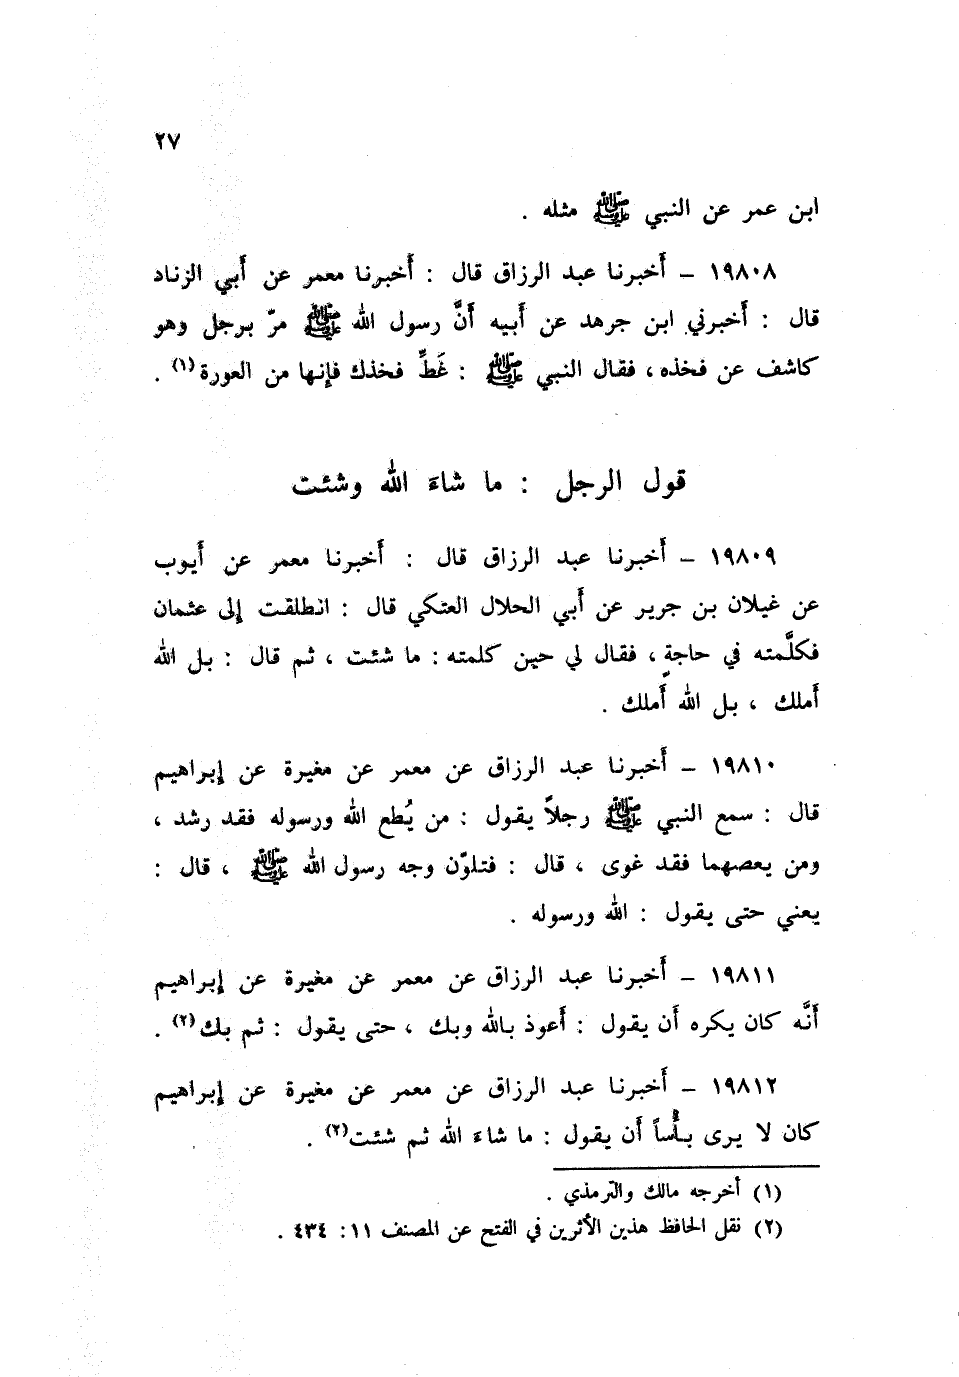 ٢٧
ابن عمر عن النبي ﷺ مثله .
١٩٨٠٨ – أخبرنا عبد الرزاق قال : أخبرنا معمر عن أبي الزناد
قال : أخبرني ابن جرهد عن أبيه أنَّ رسول الله ﷺ مرّ برجل وهو
كاشف عن فخذه ، فقال النبي ﷺ : غَطِّ فخذك فإنها من العورة (١) .
قول الرجل : ما شاءَ الله وشئت
١٩٨٠٩ – أخبرنا عبد الرزاق قال : أخبرنا معمر عن أيوب
عن غيلان بن جرير عن أبي الحلال العتكي قال : انطلقت إلى عثمان
فكلَّمته في حاجةٍ ، فقال لي حين كلمته : ما شئت ، ثم قال : بل الله
أملك ، بل الله أملك .
١٩٨١٠ – أخبرنا عبد الرزاق عن معمر عن مغيرة عن إبراهيم
قال : سمع النبي ﷺ رجلاً يقول : من يُطع الله ورسوله فقد رشد ،
ومن يعصهما فقد غوى ، قال : فتلوّن وجه رسول الله ﷺ ، قال :
يعني حتى يقول : الله ورسوله .
١٩٨١١ – أخبرنا عبد الرزاق عن معمر عن مغيرة عن إبراهيم
أنَّه كان يكره أن يقول : أعوذ بالله وبك ، حتى يقول : ثم بك (٢) .
١٩٨١٢ – أخبرنا عبد الرزاق عن معمر عن مغيرة عن إبراهيم
كان لا يرى بأساً أن يقول : ما شاءَ الله ثم شئت (٢) .
(١) أخرجه مالك والترمذي .
(٢) نقل الحافظ هذين الأثرين في الفتح عن المصنف ١١ : ٤٣٤ .